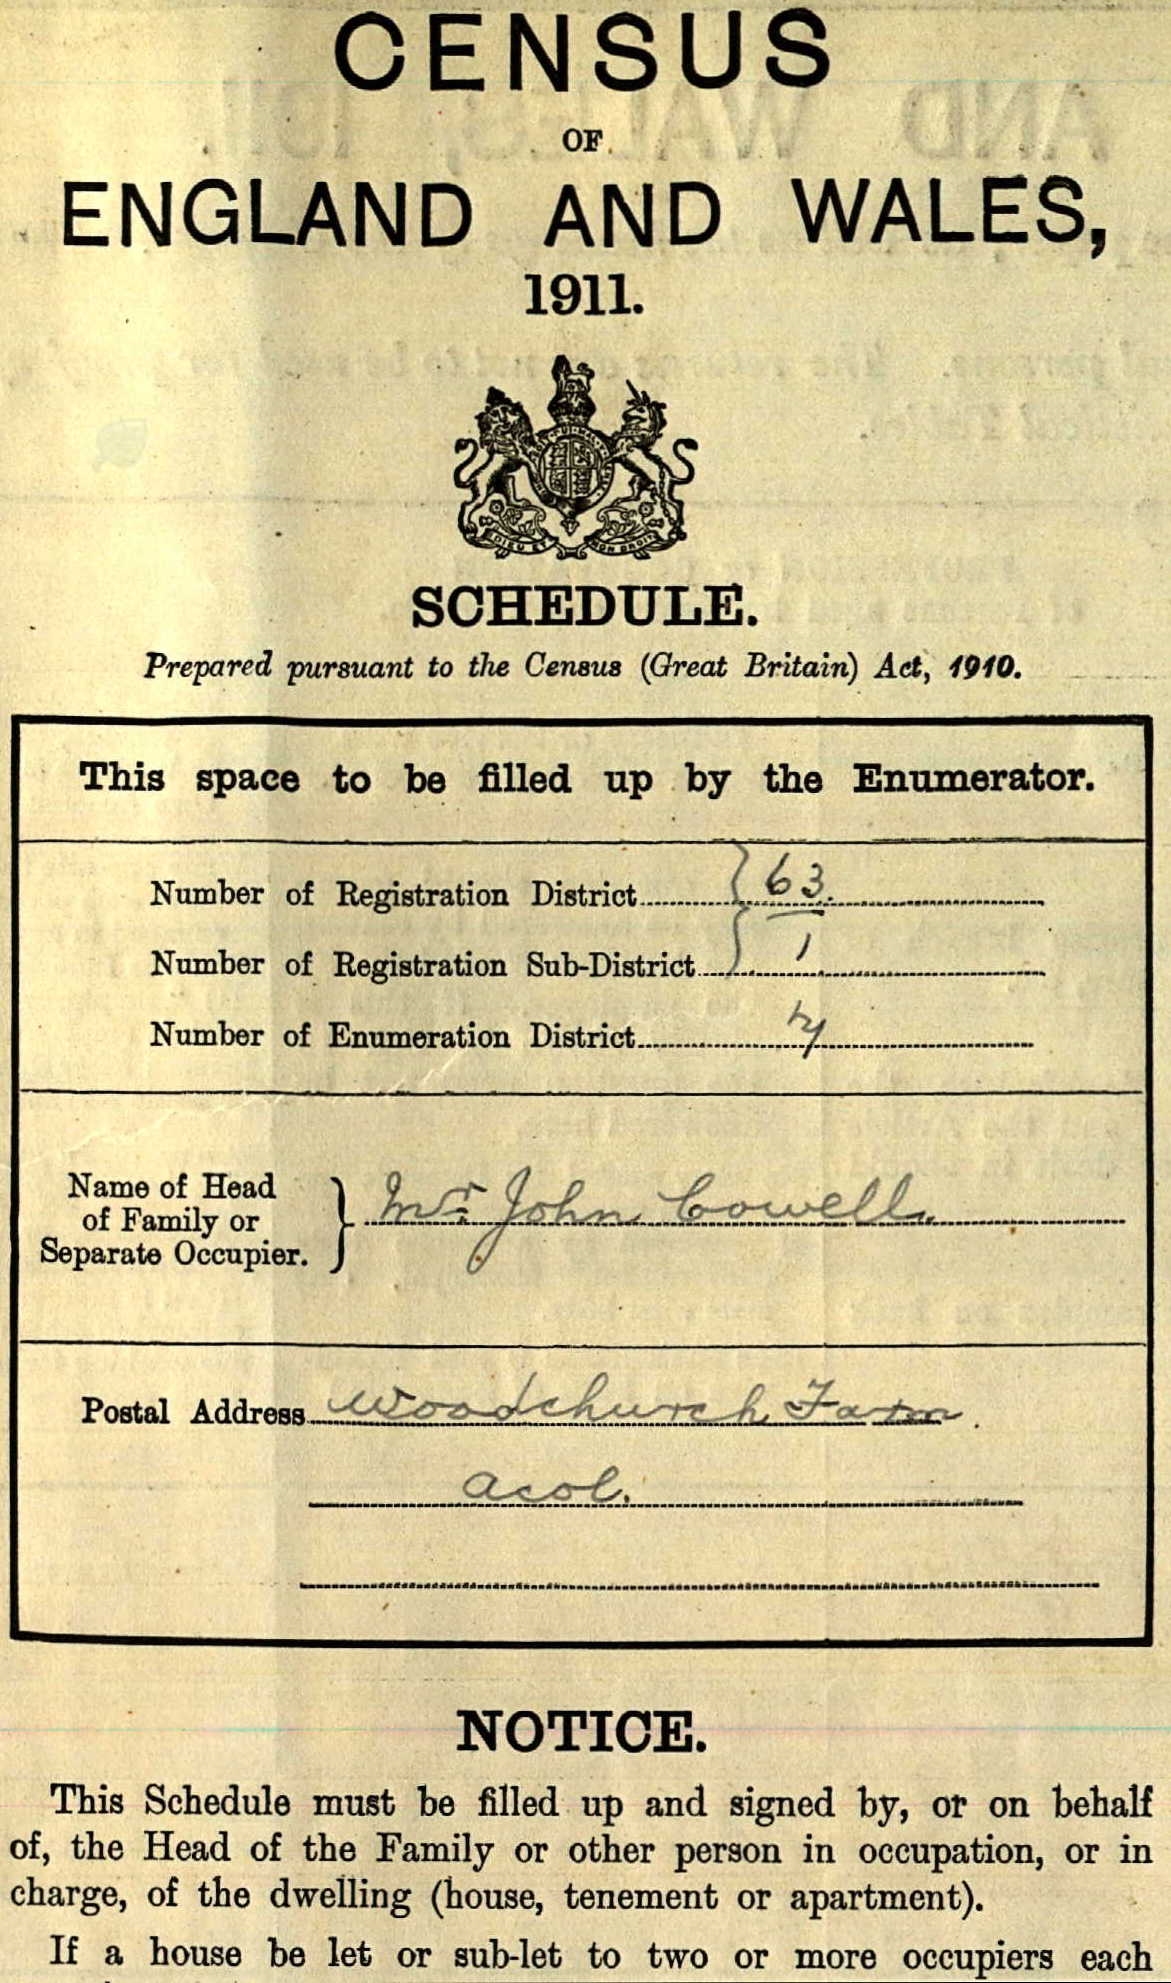 CENSUS
OF
ENGLAND AND WALES,
1911.
DIEU ET MON DROIT
SCHEDULE.
Prepared pursuant to the Census (Great Britain) Act, 1910.
This space to be filled up by the Enumerator.
Number of Registration District 63.
Number of Registration Sub-District 1
Number of Enumeration District 4
Name of Head
of Family or
Separate Occupier. } Mr. John Cowell.
Postal Address Woodchurch Farm.
acol.
NOTICE.
This Schedule must be filled up and signed by, or on behalf
of, the Head of the Family or other person in occupation, or in
charge, of the dwelling (house, tenement or apartment).
If a house be let or sub-let to two or more occupiers each